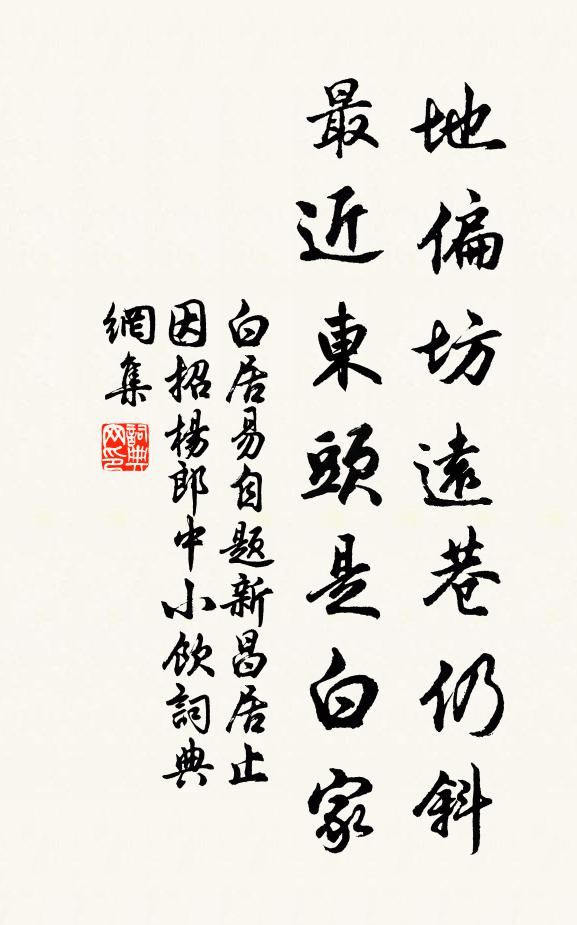 地偏坊遠巷仍斜
最近東頭是白家
白居易自題新昌居止
因招楊郎中小飲詞典
網集
詞典
网印